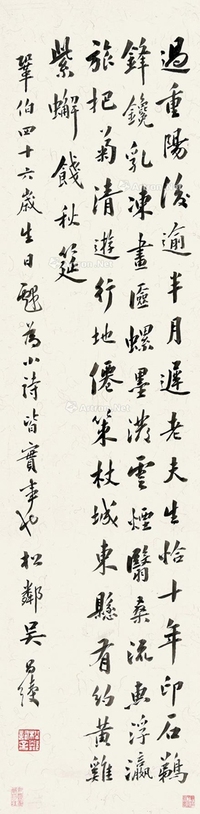 過重陽後逾半月遲老夫生恰十年印石鵜
鋒鑱乳凍畫匳螺墨潑雲煙翳桑流惠浮瀛
旅把菊清遊行地僊策杖城東有約黃雞
紫蠏餞秋筵
鞏伯四十六歲生日為小詩皆實事也松鄰吳昌綬